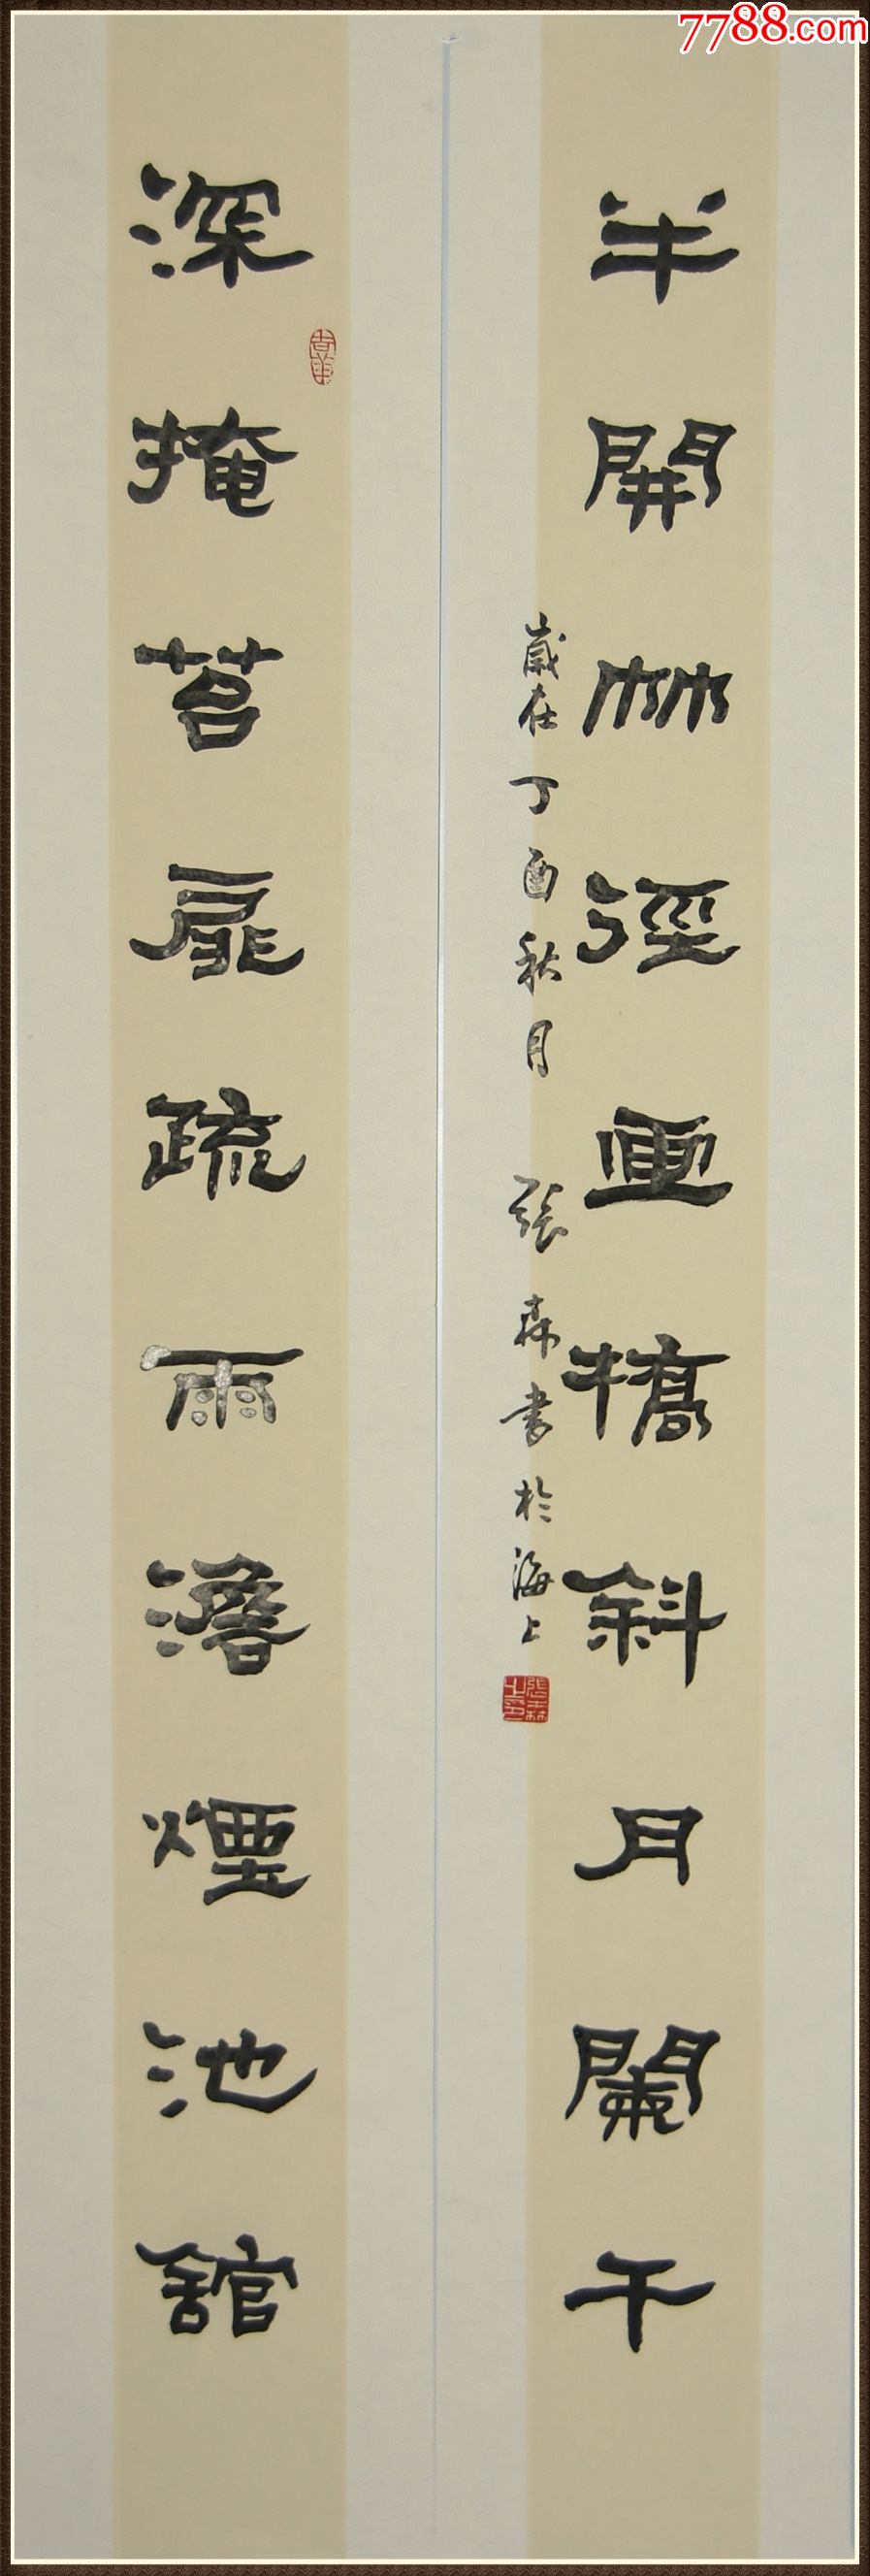 7788.com
半開竹徑畫橋斜月闌干
歲在丁酉秋月 張森書於海上
張森之印
深掩苔扉疏雨澹煙池舘